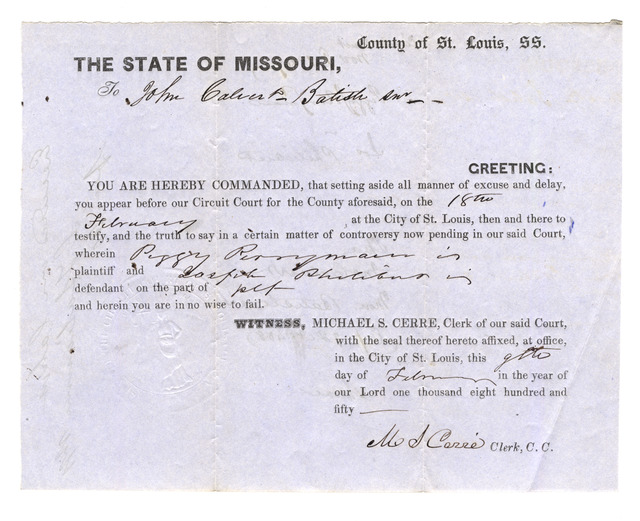 County of St. Louis, SS.
THE STATE OF MISSOURI,
To John Calvert Batish
GREETING:
YOU ARE HEREBY COMMANDED, that setting aside all manner of excuse and delay,
you appear before our Circuit Court for the County aforesaid, on the 18th
February at the City of St. Louis, then and there to
testify, and the truth to say in a certain matter of controversy now pending in our said Court,
wherein Peggy Perryman is
plaintiff and Joseph Philibert is
defendant on the part of plt
and herein you are in no wise to fail.
WITNESS, MICHAEL S. CERRE, Clerk of our said Court,
with the seal thereof hereto affixed, at office,
in the City of St. Louis, this 9th
day of February in the year of
our Lord one thousand eight hundred and
fifty —
M S Cerré Clerk, C. C.